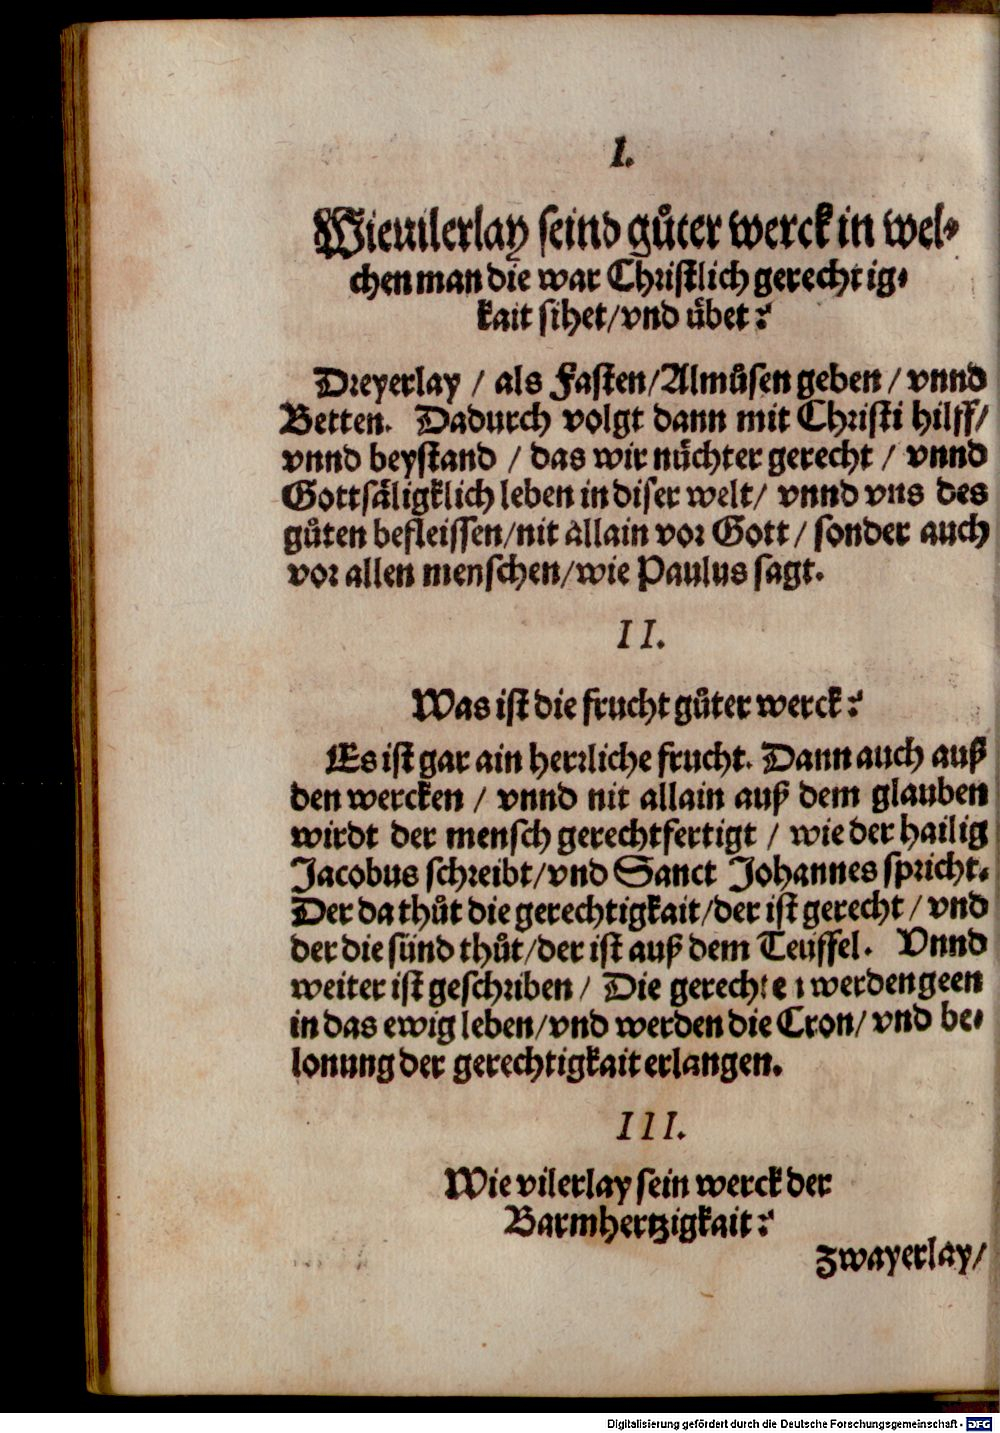 I.
Wieuilerlay seind gůter werck in wel-
chen man die war Christlich gerechtig-
kait sihet/vnd übet?
Dreyerlay / als Fasten/Almůsen geben / vnnd
Betten. Dadurch volgt dann mit Christi hilff/
vnnd beystand / das wir nüchter gerecht / vnnd
Gottsäligklich leben in diser welt/ vnnd vns des
gůten befleissen/nit allain vor Gott / sonder auch
vor allen menschen/wie Paulus sagt.
II.
Was ist die frucht gůter werck?
Es ist gar ain herrliche frucht. Dann auch auß
den wercken / vnnd nit allain auß dem glauben
wirdt der mensch gerechtfertigt / wie der hailig
Jacobus schreibt/vnd Sanct Johannes spricht.
Der da thůt die gerechtigkait/der ist gerecht / vnd
der die sünd thůt/der ist auß dem Teuffel. Vnnd
weiter ist geschriben / Die gerechten werden geen
in das ewig leben/vnd werden die Cron/ vnd be-
lonung der gerechtigkait erlangen.
III.
Wie vilerlay sein werck der
Barmhertzigkait?
Zwayerlay/
Digitalisierung gefördert durch die Deutsche Forschungsgemeinschaft - DFG